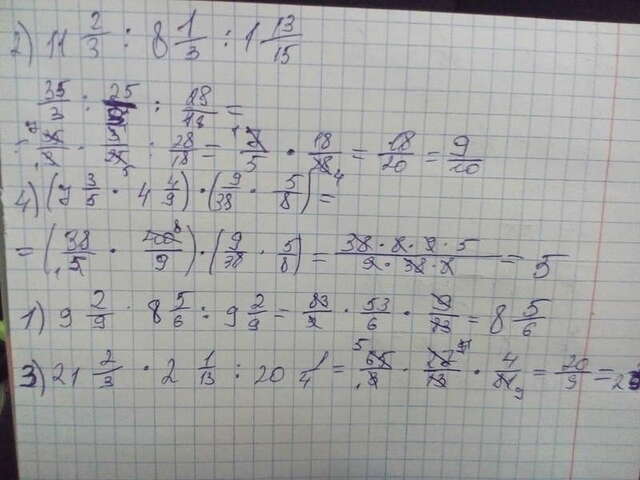 2) 11 2/3 : 8 1/3 : 1 13/15
35/3 : 25/3 : 28/15 =
= 35/3 · 3/25 : 28/18 = 7/5 · 18/28 = 18/20 = 9/10
4) (7 3/5 · 4 4/9) · (9/38 · 5/8) =
= (38/5 · 40/9) · (9/38 · 5/8) = 38 · 8 · 9 · 5 / 9 · 38 · 8 = 5
1) 9 2/9 · 8 5/6 : 9 2/9 = 83/9 · 53/6 · 9/83 = 8 5/6
3) 21 2/3 · 2 1/13 : 20 1/4 = 65/3 · 27/13 · 4/81 = 20/9 =